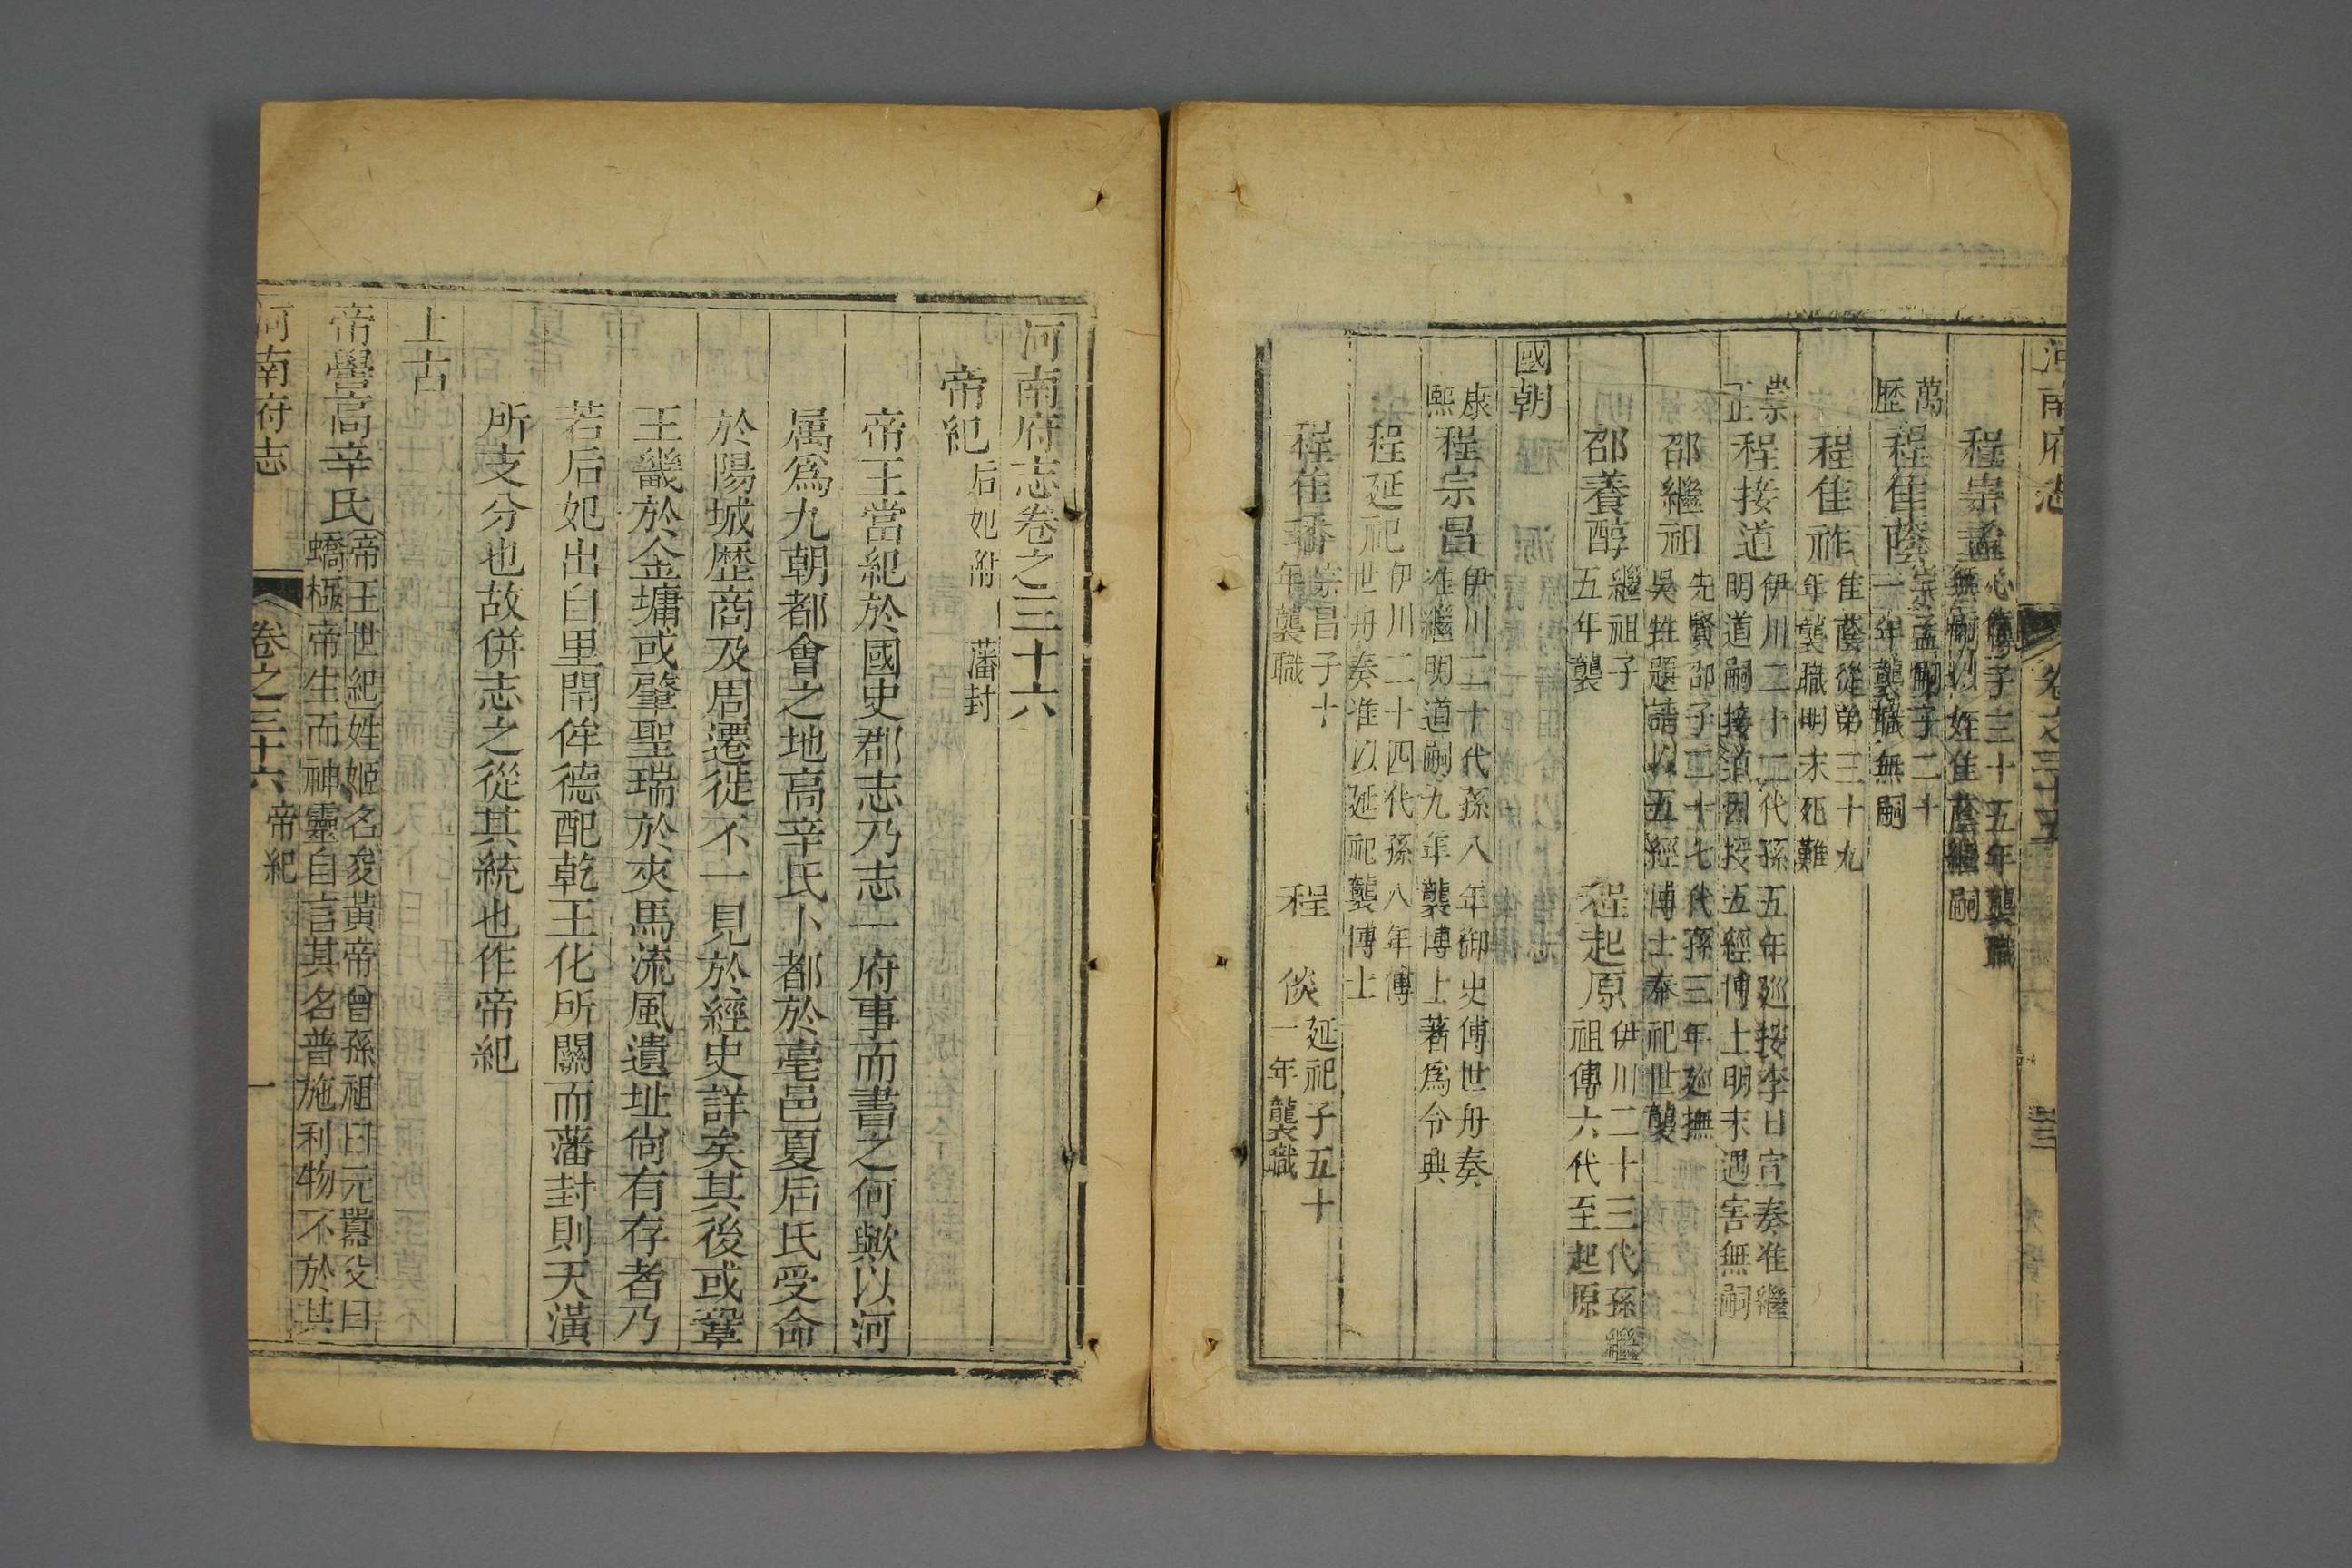 河南府志
卷之三十五
程崇孟心傳子三十五年襲職
無嗣以姓佳蔭繼嗣
萬歷
程佳蔭崇孟嗣子二十
一年襲職無嗣
程佳祚佳蔭從弟三十九
年襲職明末死難
崇正
程接道伊川二十二代孫五年廵按李日宣奏准繼
明道嗣接道因授五經博士明末遇害無嗣
邵繼祖先賢邵子二十七代孫三年廵撫
吳甡題請以五經博士奉祀世襲
邵養醇繼祖子
五年襲
程起原伊川二十三代孫繼
祖傳六代至起原
國朝
康熙
程宗昌伊川二十代孫八年御史傅世舟奏
准繼明道嗣九年襲博士著爲令典
程延祀伊川二十四代孫八年傅
世舟奏准以延祀襲博士
程佳璠崇昌子十
年襲職
程倓延祀子五十
一年襲職
河南府志卷之三十六
帝紀 后妃附 藩封
帝王當紀於國史郡志乃志一府事而書之何歟以河
属爲九朝都會之地高辛氏卜都於亳邑夏后氏受命
於陽城歷商及周遷徙不一見於經史詳矣其後或鞏
王畿於金墉或肇聖瑞於夾馬流風遺址尙有存者乃
若后妃出自里閈侔德配乾王化所關而藩封則天潢
所支分也故併志之從其統也作帝紀
上古
帝嚳高辛氏帝王世紀姓姬名夋黃帝曾孫祖曰元囂父曰
蟜極帝生而神靈自言其名普施利物不於其
河南府志
卷之三十六
帝紀
一